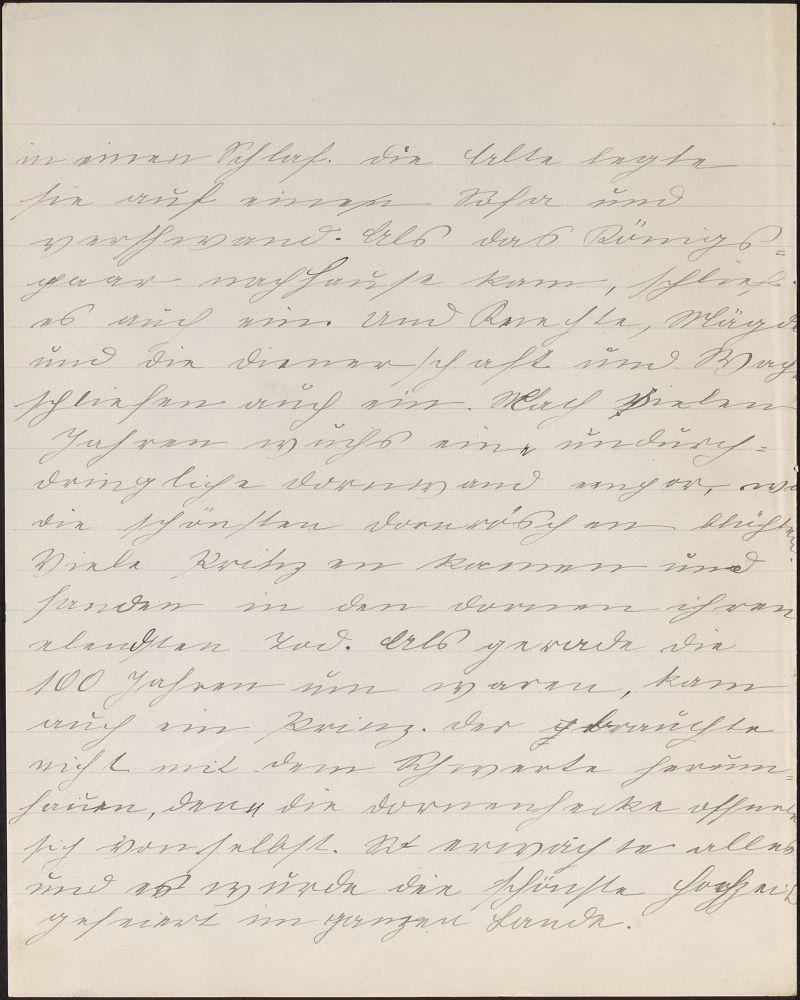 in einen Schlaf. Die Alte legte
sie auf einen Sofa und
verschwand. Als das Königs=
paar nachhause kam, schlief
es auch ein. Und Knechte, Mägde
und die Dienerschaft und Wache
schliefen auch ein. Nach vielen
Jahren wuchs eine undurch=
dringliche Dornwand empor, wo
die schönsten Dornröschen blühten.
Viele Prinzen kamen und
fanden in den Dornen ihren
elendsten Tod. Als gerade die
100 Jahren um waren, kam
auch ein Prinz. Der brauchte
nicht mit dem Schwerte herum=
hauen, denn die Dornenhecke öffnete
sich von selbst. So erwachte alles
und es wurde die schönste Hochzeit
gefeiert im ganzen Lande.